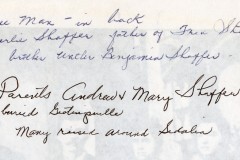 Max - in back
Shaffer father of Ina
brother Uncle Benjamin Shaffer.
Parents Andrew & Mary Shaffer
buried
Many raised around Sedalia